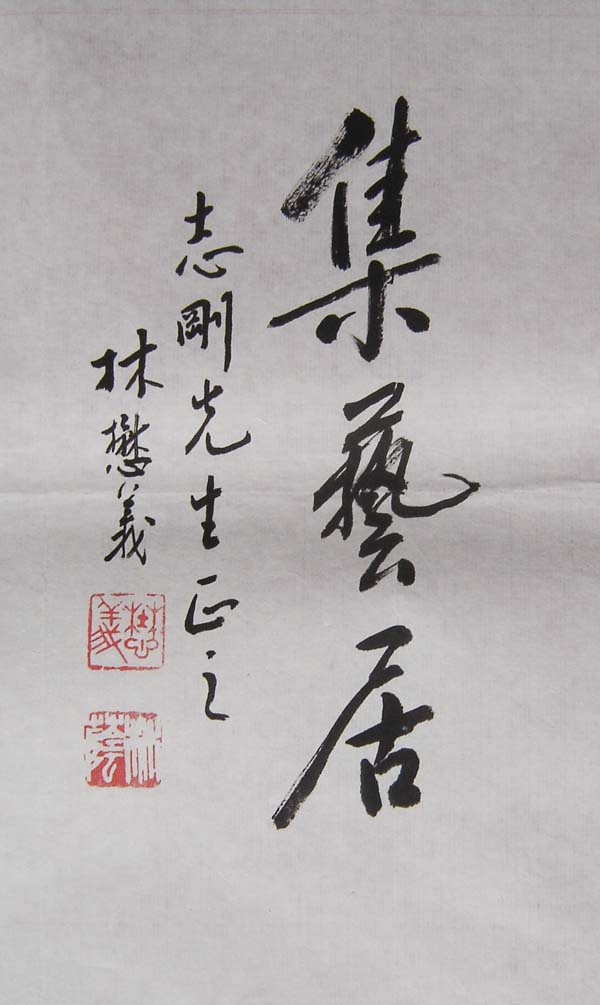 集藝居
志剛先生正之
林懋義
懋義